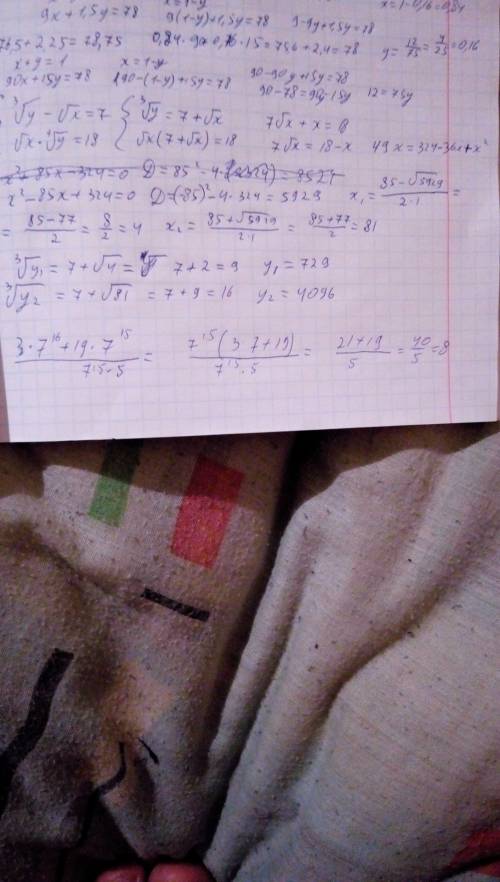 9x + 1,5y = 78 9(1-y)+1,5y = 78 9-9y+1,5y = 78 x = 1-0,16 = 0,84
76,5 + 2,25 = 78,75 0,84·90+0,16·15 = 75,6+2,4 = 78 y = 12/75 = 4/25 = 0,16
x + y = 1 x = 1-y
90x + 15y = 78 90-90y+15y = 78
90-78 = 90y-15y 12 = 75y
∛y - √x = 7 { ∛y = 7 + √x 7√x + x = 18
√x·∛y = 18 √x(7+√x) = 18 7√x = 18-x 49x = 324-36x+x²
x² - 85x + 324 = 0 D = (-85)² - 4·324 = 5929 x₁ = (85-√5929)/(2·1) =
= (85-77)/2 = 8/2 = 4 x₂ = (85+√5929)/(2·1) = (85+77)/2 = 81
∛y₁ = 7 + √4 = 7+2 = 9 y₁ = 729
∛y₂ = 7 + √81 = 7 + 9 = 16 y₂ = 4096
(3·7¹⁶+19·7¹⁵)/(7¹⁵·5) = 7¹⁵(3·7+19)/(7¹⁵·5) = (21+19)/5 = 40/5 = 8